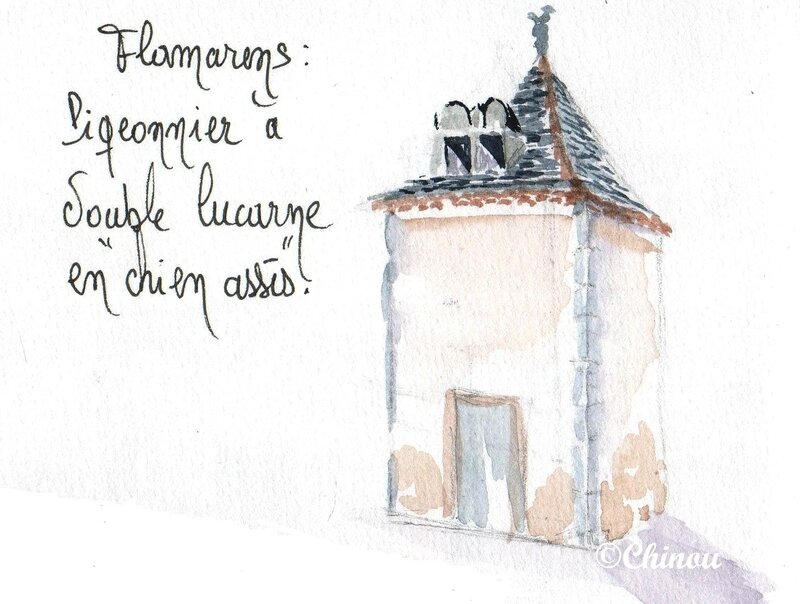 Flamarens :
Pigeonnier à
double lucarne
en "chien assis".
©Chinou